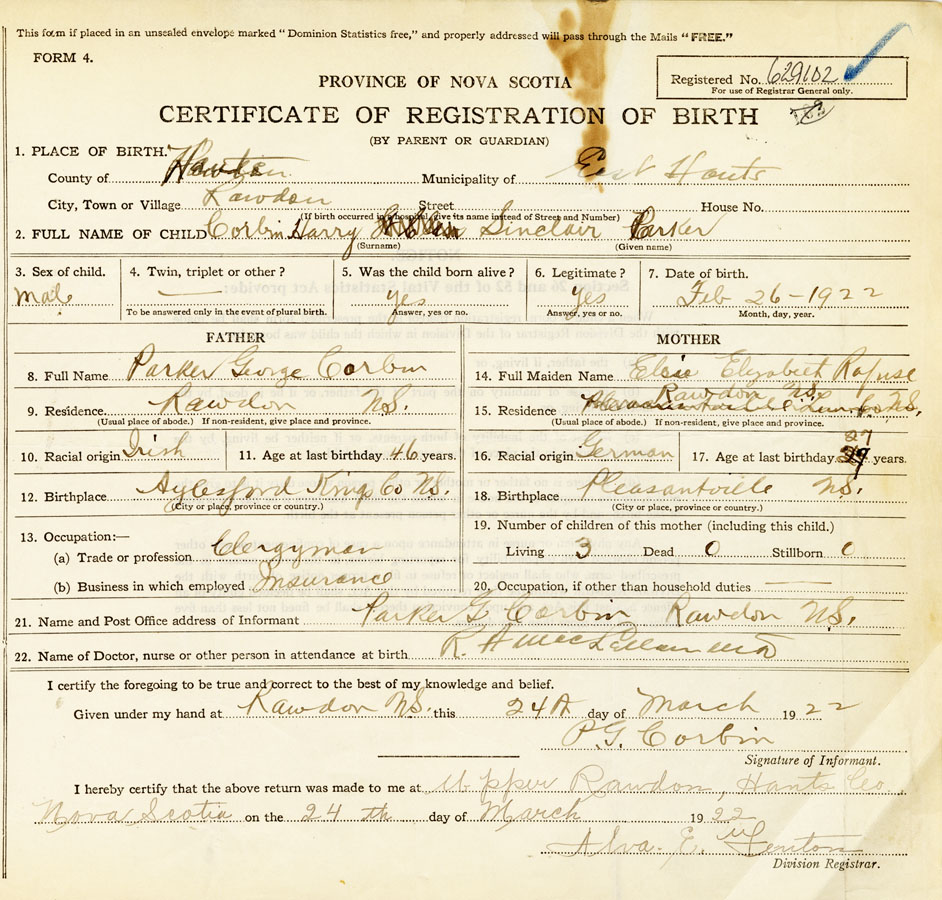 This form if placed in an unsealed envelope marked "Dominion Statistics free," and properly addressed will pass through the Mails "FREE."
FORM 4.
Registered No. 629102
For use of Registrar General only.
PROVINCE OF NOVA SCOTIA
CERTIFICATE OF REGISTRATION OF BIRTH
(BY PARENT OR GUARDIAN)
1. PLACE OF BIRTH.
County of Hants Municipality of East Hants
City, Town or Village Rawdon Street House No.
(If birth occurred in a hospital, give its name instead of Street and Number)
2. FULL NAME OF CHILD Corbin Harry Sinclair Parker
(Surname) (Given name)
3. Sex of child. 4. Twin, triplet or other? 5. Was the child born alive? 6. Legitimate? 7. Date of birth.
Male — yes yes Feb 26-1922
To be answered only in the event of plural birth. Answer, yes or no. Answer, yes or no. Month, day, year.
FATHER
8. Full Name Parker George Corbin
9. Residence Rawdon N.S.
(Usual place of abode.) If non-resident, give place and province.
10. Racial origin Irish 11. Age at last birthday 46 years.
12. Birthplace Aylesford Kings Co N.S.
(City or place, province or country.)
13. Occupation:—
(a) Trade or profession Clergyman
(b) Business in which employed Insurance
MOTHER
14. Full Maiden Name Elsie Elizabeth Rafuse
15. Residence Rawdon N.S.
(Usual place of abode.) If non-resident, give place and province.
16. Racial origin German 17. Age at last birthday 27 years.
18. Birthplace Pleasantville N.S.
(City or place, province or country.)
19. Number of children of this mother (including this child.)
Living 3 Dead 0 Stillborn 0
20. Occupation, if other than household duties —
21. Name and Post Office address of Informant Parker G Corbin Rawdon N.S.
22. Name of Doctor, nurse or other person in attendance at birth R. H
I certify the foregoing to be true and correct to the best of my knowledge and belief.
Given under my hand at Rawdon N.S. this 24th day of March 1922
P.G. Corbin
Signature of Informant.
I hereby certify that the above return was made to me at Upper Rawdon, Hants Co
Nova Scotia on the 24 th day of March 1922
Alva. E.
Division Registrar.